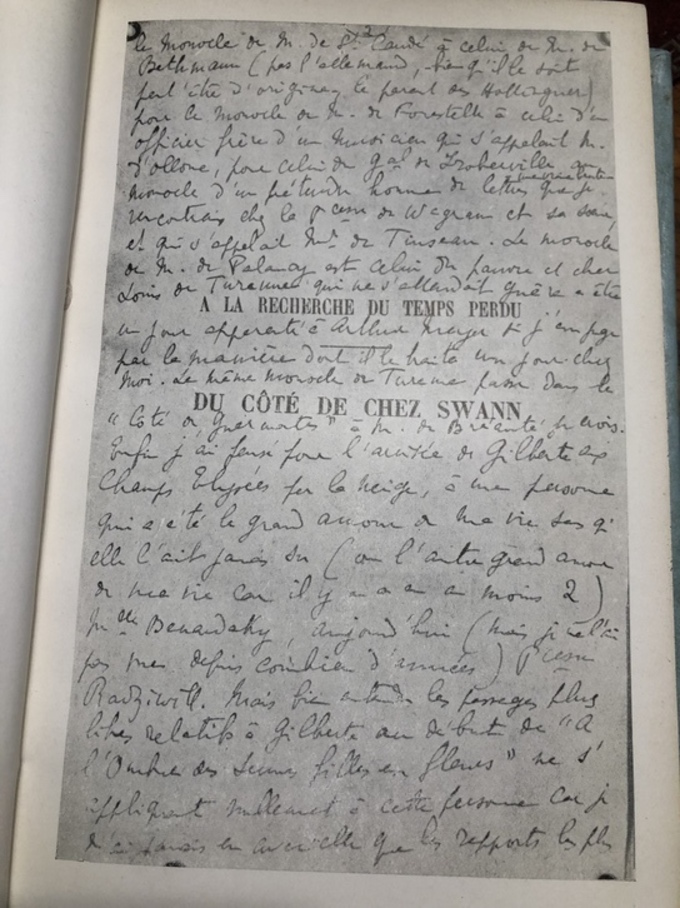 le monocle de M. de St Candé à celui de M. de
Bethmann (pas l'allemand, bien qu'il le soit
peut'être d'origine, le parent des Hottinguer)
pour le monocle de M. de Forestelle à celui d'un
officier frère d'un musicien qui s'appelait M.
d'Ollone, pour celui du Gal de Froberville au
monocle d'un prétendu homme de lettres que je
rencontrais chez la Pcesse de Wagram et sa sœur,
et qui s'appelait Mr de Tinseau. Le monocle
de M. de Palancy est celui du pauvre et cher
Louis de Turenne qui ne s'attendait guère à être
A LA RECHERCHE DU TEMPS PERDU
un jour apparenté à Arthur Meyer si j'en juge
par la manière dont il le traita un jour chez
moi. Le même monocle de Turenne passe dans le
DU CÔTÉ DE CHEZ SWANN
"Côté de Guermantes" à M. de Bréauté je crois.
Enfin j'ai pensé pour l'arrivée de Gilberte aux
Champs Elysées par la neige, à une personne
qui a été le grand amour de ma vie sans qu'
elle l'ait jamais su (ou l'autre grand amour
de ma vie car il y en a au moins 2)
Mlle Benardaky, aujourd'hui (mais je ne l'ai
pas vue depuis combien d'années) Pcesse
Radziwill. Mais bien entendu les passages plus
libres relatifs à Gilberte au début de "A
l'Ombre des Jeunes filles en fleurs" ne s'
appliquent nullement à cette personne car je
n'ai jamais eu avec elle que les rapports les plus